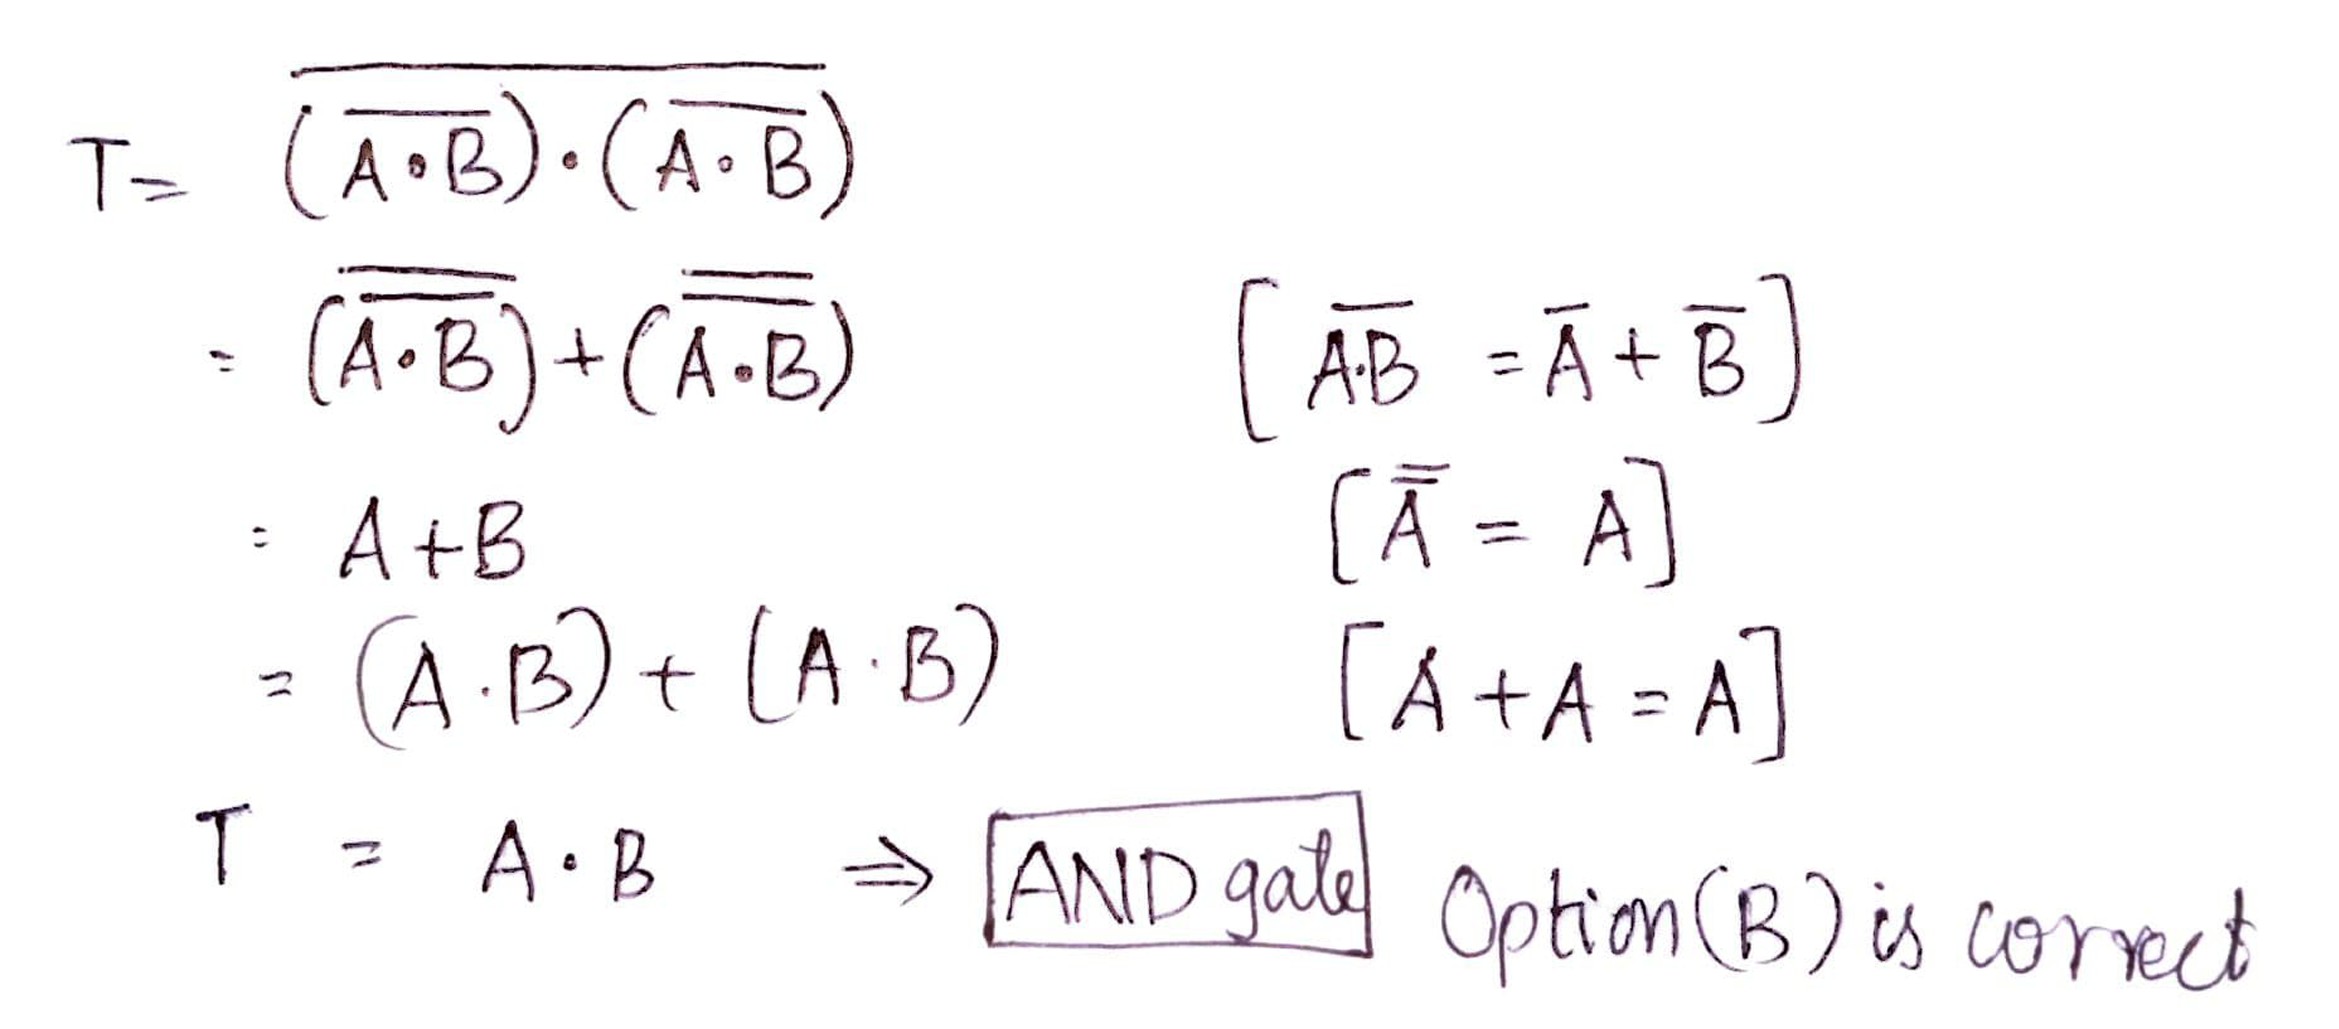 T= \overline{(\overline{A·B})·(\overline{A·B})}
= (\overline{\overline{A·B}})+(\overline{\overline{A·B}}) [\overline{A·B} = \overline{A} + \overline{B}]
= A+B [\overline{\overline{A}} = A]
= (A·B) + (A·B) [A + A = A]
T = A·B ⇒ AND gate Option (B) is correct